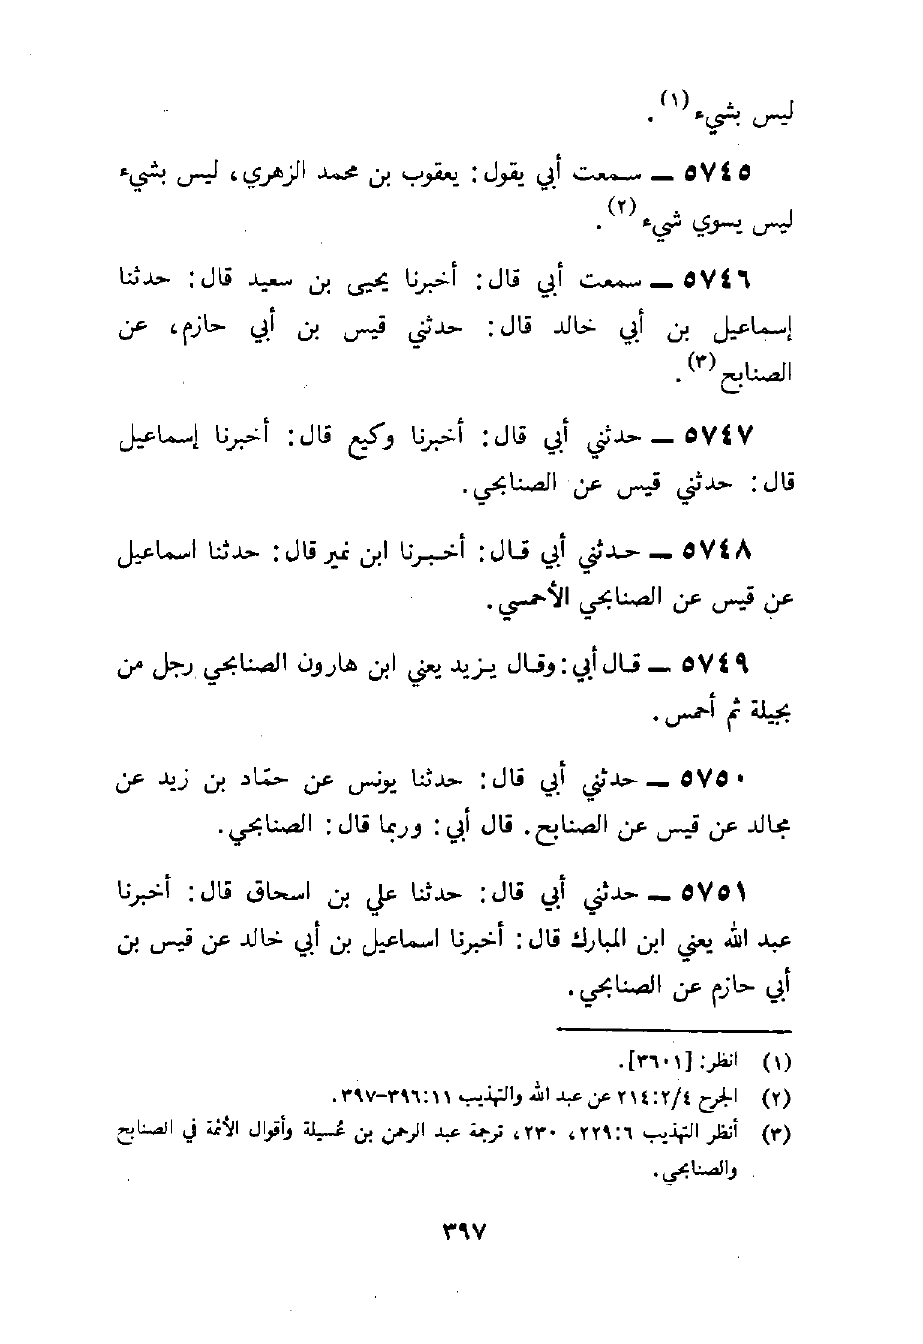 ليس بشيء (١).
٥٧٤٥ ــ سمعت أبي يقول: يعقوب بن محمد الزهري، ليس بشيء
ليس يسوي شيء (٢).
٥٧٤٦ ــ سمعت أبي قال: أخبرنا يحيى بن سعيد قال: حدثنا
إسماعيل بن أبي خالد قال: حدثني قيس بن أبي حازم، عن
الصنابح (٣).
٥٧٤٧ ــ حدثني أبي قال: أخبرنا وكيع قال: أخبرنا إسماعيل
قال: حدثني قيس عن الصنابحي.
٥٧٤٨ ــ حدثني أبي قال: أخبرنا ابن نمير قال: حدثنا اسماعيل
عن قيس عن الصنابحي الأحمسي.
٥٧٤٩ ــ قال أبي: وقال يزيد يعني ابن هارون الصنابحي رجل من
بجيلة ثم أحمس.
٥٧٥٠ ــ حدثني أبي قال: حدثنا يونس عن حمّاد بن زيد عن
مجالد عن قيس عن الصنابح. قال أبي: وربما قال: الصنابحي.
٥٧٥١ ــ حدثني أبي قال: حدثنا علي بن اسحاق قال: أخبرنا
عبد الله يعني ابن المبارك قال: أخبرنا اسماعيل بن أبي خالد عن قيس بن
أبي حازم عن الصنابحي.
(١) انظر: [٣٦٠١].
(٢) الجرح ٢١٤:٢/٤ عن عبد الله والتهذيب ٣٩٦:١١–٣٩٧.
(٣) أنظر التهذيب ٢٢٩:٦، ٢٣٠، ترجمة عبد الرحمن بن عُسيلة وأقوال الأئمة في الصنابح
والصنابحي.
٣٩٧